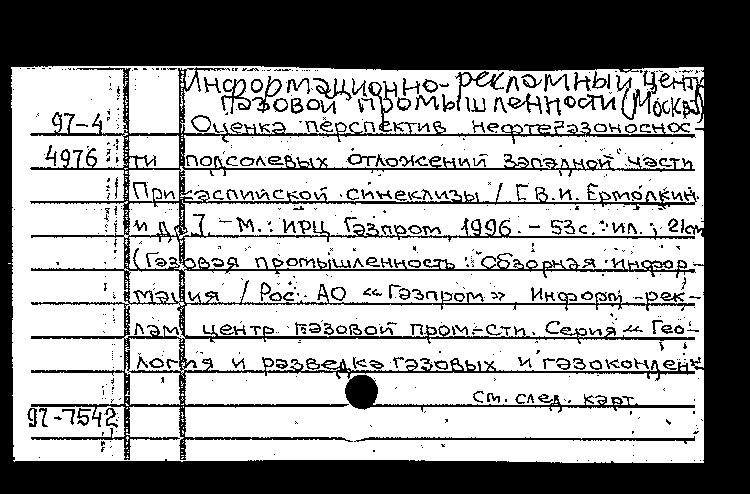 Информационно-рекламный центр
газовой промышленности (Москва)
97-4 Оценка перспектив нефтегазоноснос-
4976 ти подсолевых отложений западной части
Прикаспийской синеклизы / [В.И. Ермолкин
и др.] - М.: ИРЦ Газпром, 1996. - 53с.: ил.; 21см
(Газовая промышленность: Обзорная информ-
мация / Рос. АО «Газпром», Информ.-рек-
лам. центр газовой пром-сти. Серия «Гео-
логия и разведка газовых и газоконден-
см. след. карт.
97-7542